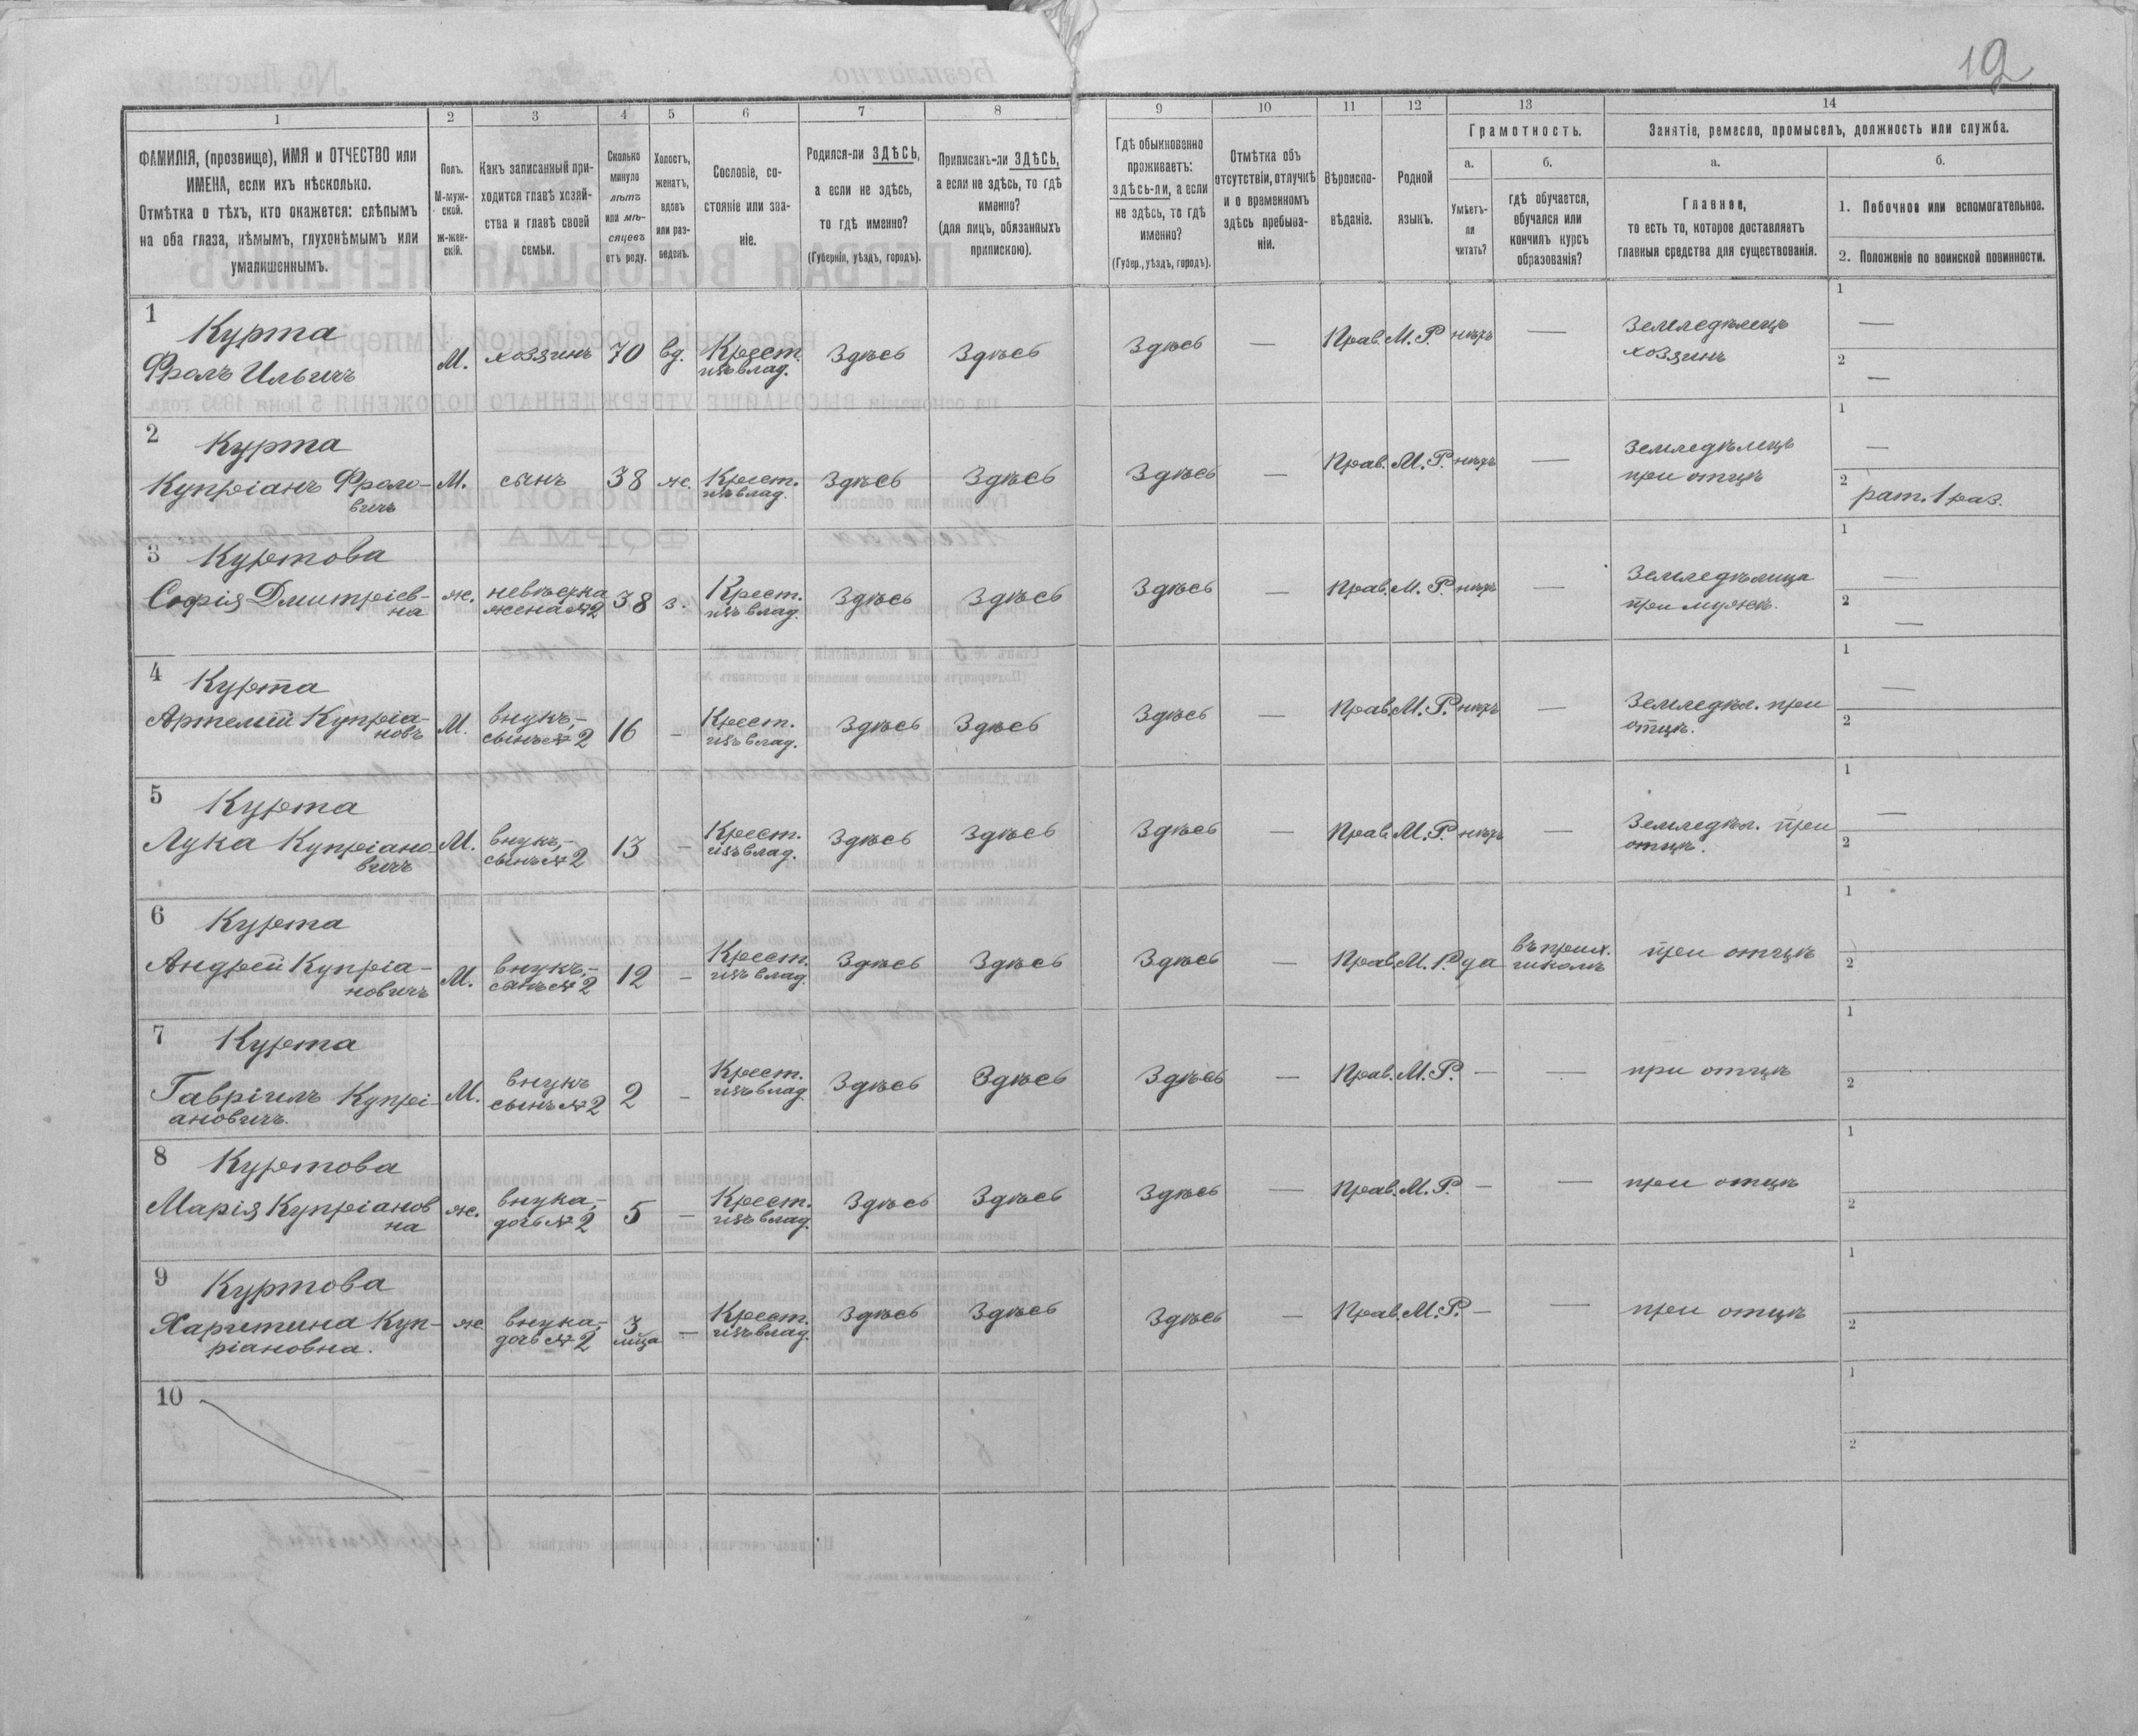 12
1 2 3 4 5 6 7 8 9 10 11 12 13 14
ФАМИЛІЯ, (прозвище), ИМЯ и ОТЧЕСТВО или
ИМЕНА, если ихъ нѣсколько.
Отмѣтка о тѣхъ, кто окажется: слѣпымъ
на оба глаза, нѣмымъ, глухонѣмымъ или
умалишеннымъ.
Полъ.
М-муж-
ской.
ж-жен-
скій.
Какъ записанный при-
ходится главѣ хозяй-
ства и главѣ своей
семьи.
Сколько
минуло
лѣтъ
или мѣ-
сяцевъ
отъ роду.
Холостъ,
женатъ,
вдовъ
или раз-
веденъ.
Сословіе, со-
стояніе или зва-
ніе.
Родился-ли ЗДѢСЬ,
а если не здѣсь,
то гдѣ именно?
(Губернія, уѣздъ, городъ).
Приписанъ-ли ЗДѢСЬ,
а если не здѣсь, то гдѣ
именно?
(для лицъ, обязанныхъ
припискою).
Гдѣ обыкновенно
проживаетъ:
здѣсь-ли, а если
не здѣсь, то гдѣ
именно?
(Губер., уѣздъ, городъ).
Отмѣтка объ
отсутствіи, отлучкѣ
и о временномъ
здѣсь пребыва-
ніи.
Вѣроиспо-
вѣданіе.
Родной
языкъ.
Грамотность.
а.
Умѣетъ-
ли
читать?
б.
гдѣ обучается,
обучался или
кончилъ курсъ
образованія?
Занятіе, ремесло, промыселъ, должность или служба.
а.
Главное,
то есть то, которое доставляетъ
главныя средства для существованія.
б.
1. Побочное или вспомогательное.
2. Положеніе по воинской повинности.
1 Курта
Фролъ Ильичъ
М. хозяинъ 70 вд. Крест.
изъ влад.
Здѣсь Здѣсь Здѣсь — Прав. М.Р. нѣтъ —
Земледѣлецъ
хозяинъ
1 —
2 —
2 Курта
Купріанъ Фроло-
вичъ
М. сынъ 38 ж. Крест.
изъ влад.
Здѣсь Здѣсь Здѣсь — Прав. М.Р. нѣтъ —
Земледѣлецъ
при отцѣ
1 —
2 рат. 1 раз.
3 Куртова
Софія Дмитріев-
на
ж. невѣстка
жена № 2
38 з. Крест.
изъ влад.
Здѣсь Здѣсь Здѣсь — Прав. М.Р. нѣтъ —
Земледѣлица
при мужѣ.
1 —
2 —
4 Курта
Артемій Купріа-
новъ
М. внукъ,-
сынъ № 2
16 — Крест.
изъ влад.
Здѣсь Здѣсь Здѣсь — Прав. М.Р. нѣтъ —
Земледѣл. при
отцѣ.
1 —
2
5 Курта
Лука Купріано
вичъ
М. внукъ,-
сынъ № 2
13 — Крест.
изъ влад.
Здѣсь Здѣсь Здѣсь — Прав. М.Р. нѣтъ —
Земледѣл. при
отцѣ.
1 —
2
6 Курта
Андрей Купріа-
новичъ
М. внукъ,-
сынъ № 2
12 — Крест.
изъ влад.
Здѣсь Здѣсь Здѣсь — Прав. М.Р. да
въ прих.
школѣ
при отцѣ
1
2
7 Курта
Гавріилъ Купрі-
ановичъ.
М. внукъ
сынъ № 2
2 — Крест.
изъ влад.
Здѣсь Здѣсь Здѣсь — Прав. М.Р. — —
при отцѣ
1
2
8 Куртова
Марія Купріанов
на
ж. внука,-
дочь № 2
5 — Крест.
изъ влад.
Здѣсь Здѣсь Здѣсь — Прав. М.Р. — —
при отцѣ
1
2
9 Куртова
Харитина Куп-
ріановна.
ж внука,-
дочь № 2
3
м-ца
— Крест.
изъ влад.
Здѣсь Здѣсь Здѣсь — Прав. М.Р. — —
при отцѣ
1
2
10
1
2